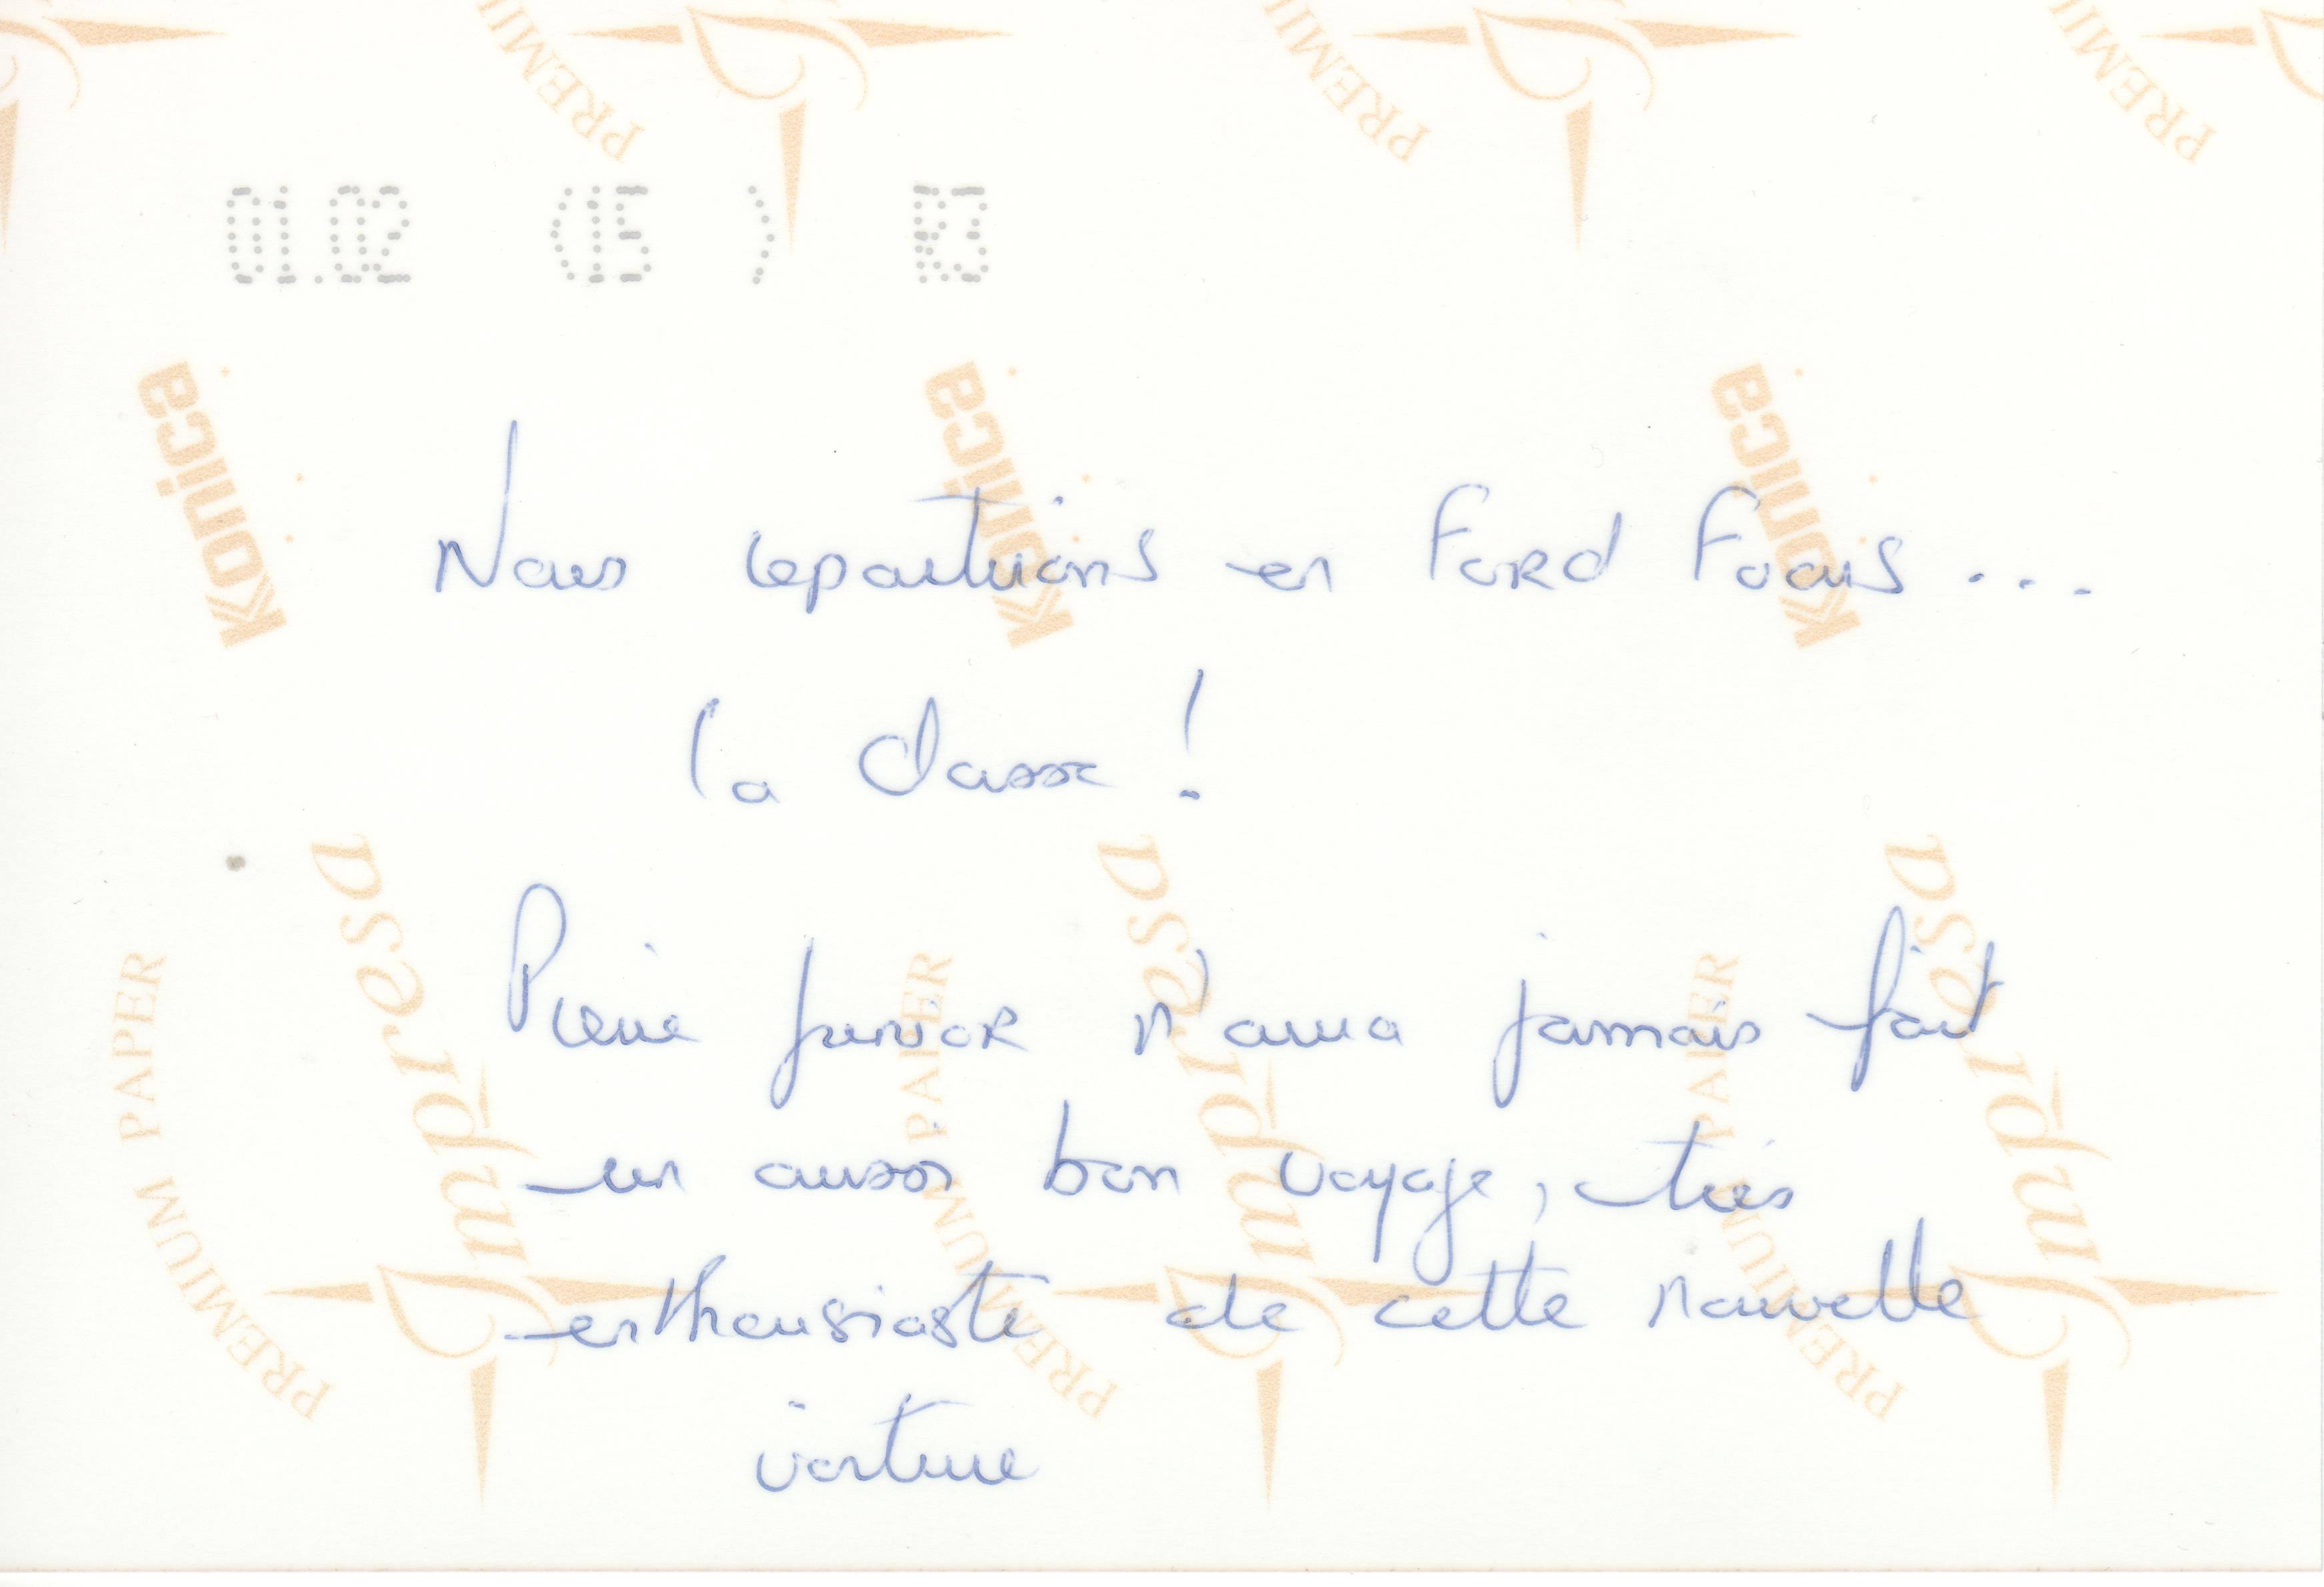 01.02 (15 ) R3
Nous repartirions en Ford Focus ...
la classe !
Pierre junior n'aura jamais fait
un aussi bon voyage, très
enthousiaste de cette nouvelle
voiture
Konica
Konica
Konica
Impresa
Impresa
Impresa
PREMIUM PAPER
PREMIUM PAPER
PREMIUM PAPER